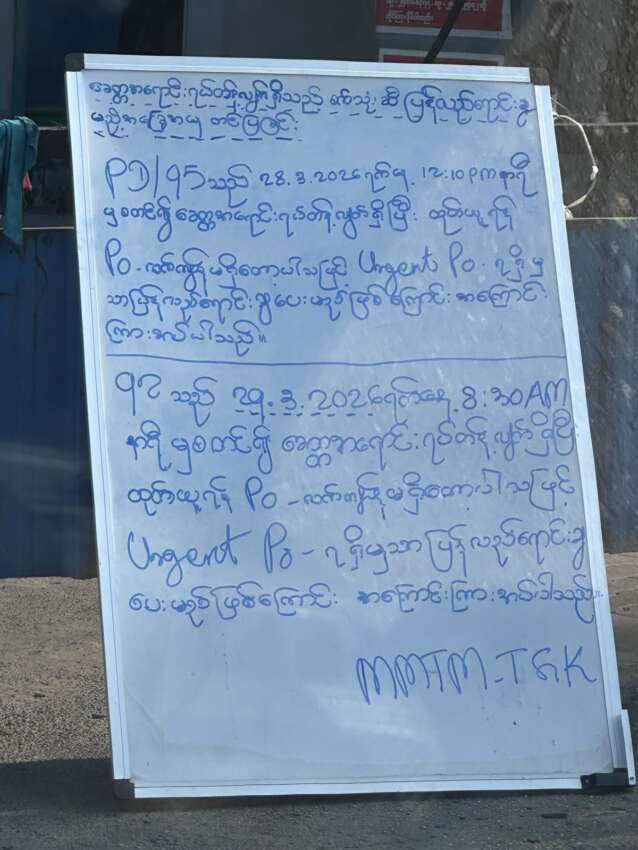 ခေတ္တအရောင်းရပ်တန့်လျှက်ရှိသည့် စက်သုံးဆီ ပြန်လည်ရောင်းချ
မည့်အခြေအနေ တင်ပြခြင်း
PD/95 သည် 28.3.2026ရက်နေ့ 12:10PM နာရီ
မှစတင်၍ ခေတ္တအရောင်းရပ်တန့်လျှက်ရှိပြီး ထုတ်ယူရန်
Po - လက်ကျန်မရှိတော့ပါသဖြင့် Urgent Po - ရရှိမှ
သာပြန်လည်ရောင်းချပေးမည်ဖြစ်ကြောင်း အကြောင်း
ကြားအပ်ပါသည်။
92 သည် 29.3.2026ရက်နေ့ 8:30AM
နာရီ မှစတင်၍ ခေတ္တအရောင်းရပ်တန့်လျှက်ရှိပြီး
ထုတ်ယူရန် Po - လက်ကျန်မရှိတော့ပါသဖြင့်
Urgent Po - ရရှိမှသာပြန်လည်ရောင်းချ
ပေးမည်ဖြစ်ကြောင်း အကြောင်းကြားအပ်ပါသည်။
MMTM-TGK